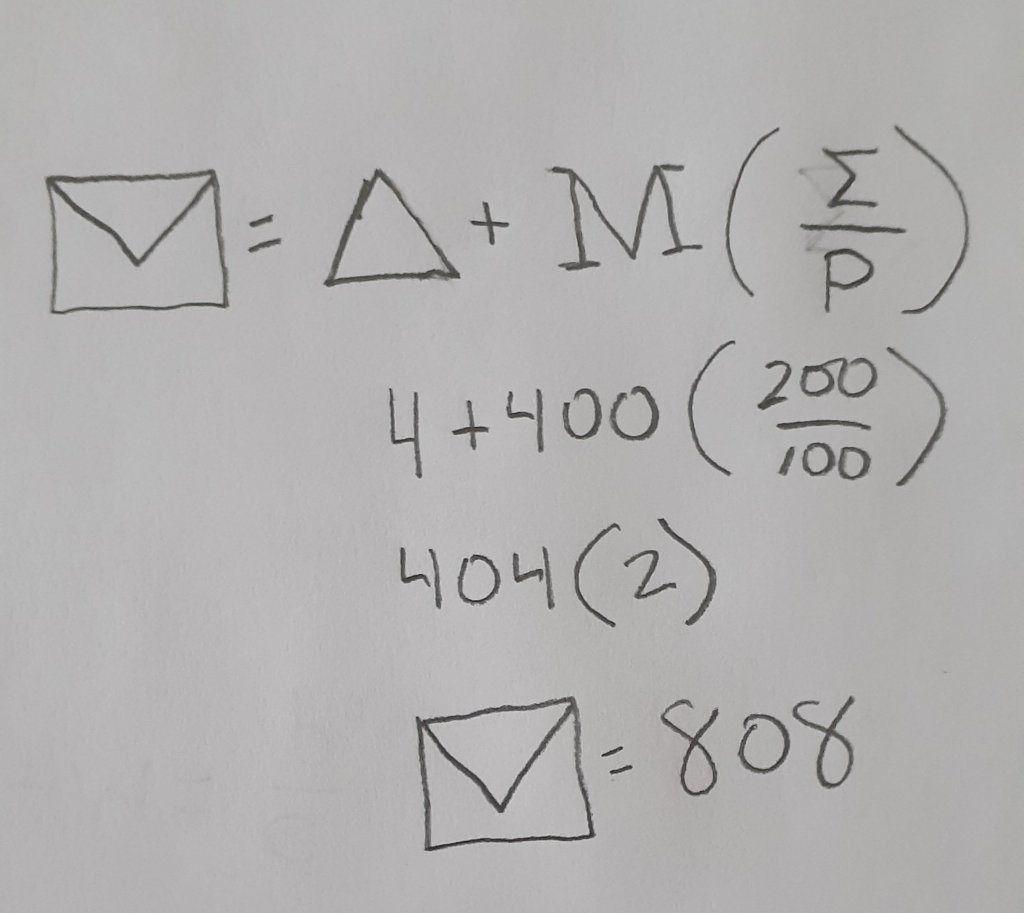 ✉ = Δ + M (Σ/P)
4 + 400 (200/100)
404 (2)
✉ = 808